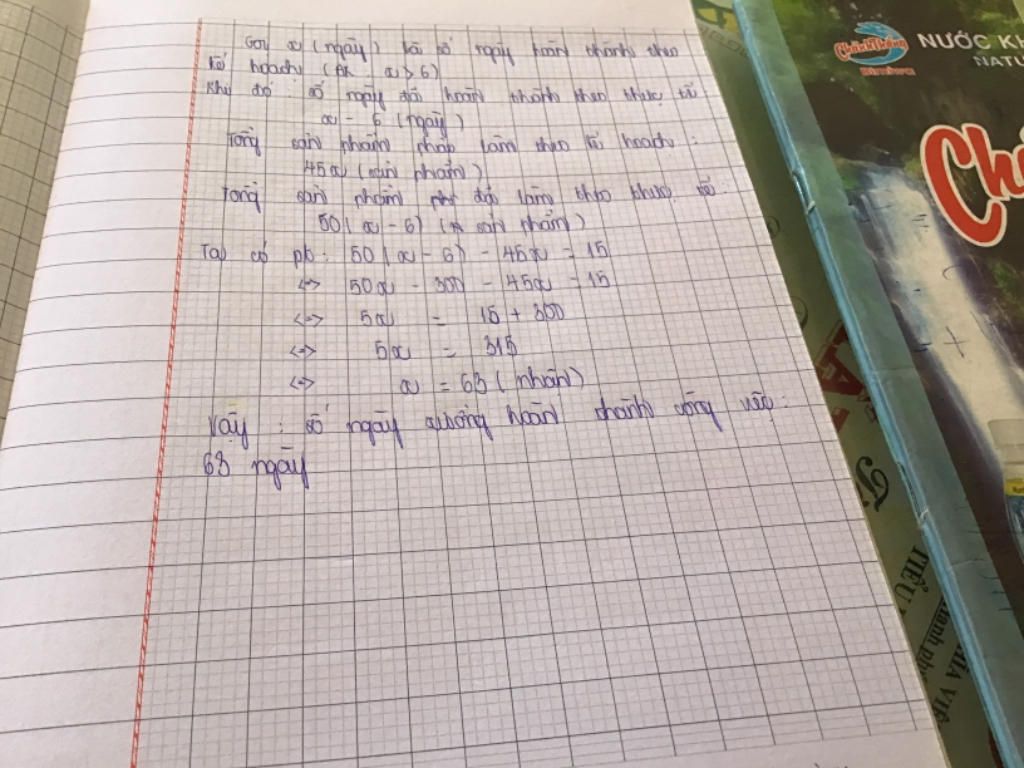 Gọi x (ngày) là số ngày hoàn thành theo
kế hoạch (ĐK: x > 6)
Khi đó: số ngày đã hoàn thành theo thực tế:
x - 6 (ngày)
Tổng sản phẩm phải làm theo kế hoạch:
45x (sản phẩm)
Tổng sản phẩm đã làm theo thực tế:
50(x - 6) (sản phẩm)
Ta có pt: 50(x - 6) - 45x = 15
<=> 50x - 300 - 45x = 15
<=> 5x = 15 + 300
<=> 5x = 315
<=> x = 63 (nhận)
Vậy: số ngày xưởng hoàn thành công việc:
63 ngày
Chánh Thắng
NƯỚC KH
NATU
Ch
TIỂU